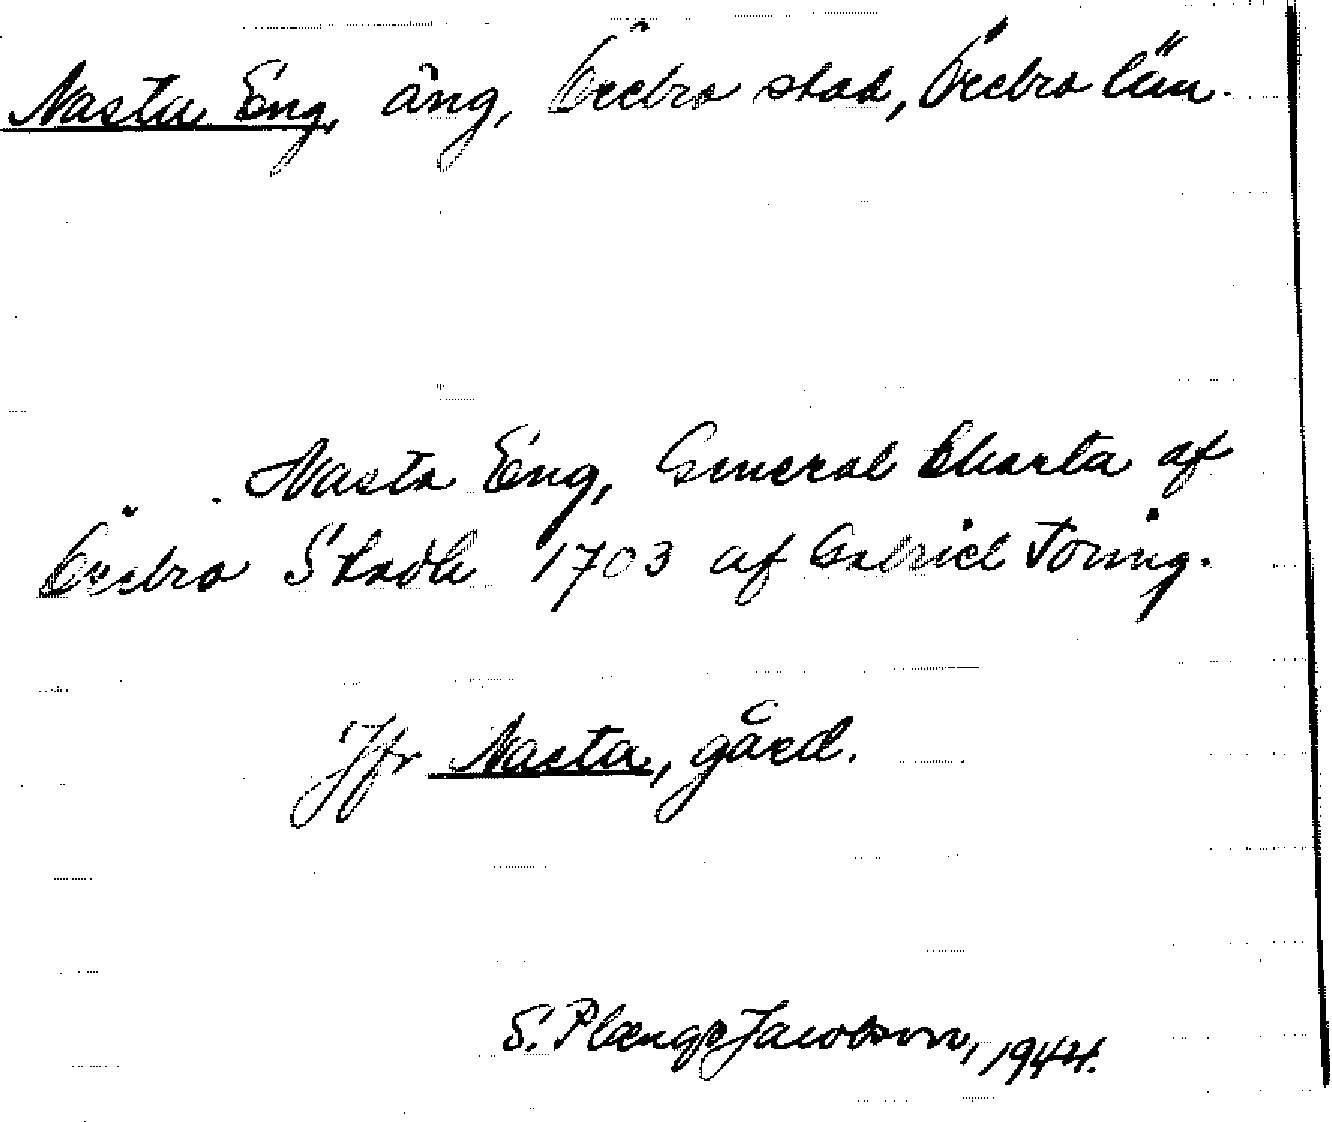 Nasta Eng, äng, Örebro stad, Örebro län.
Nasta Eng, General Charta af
Örebro Stadh 1703 af Gabriel Töring.
Jfr Nasta, gård.
S. Plænge Jacobson, 1944.